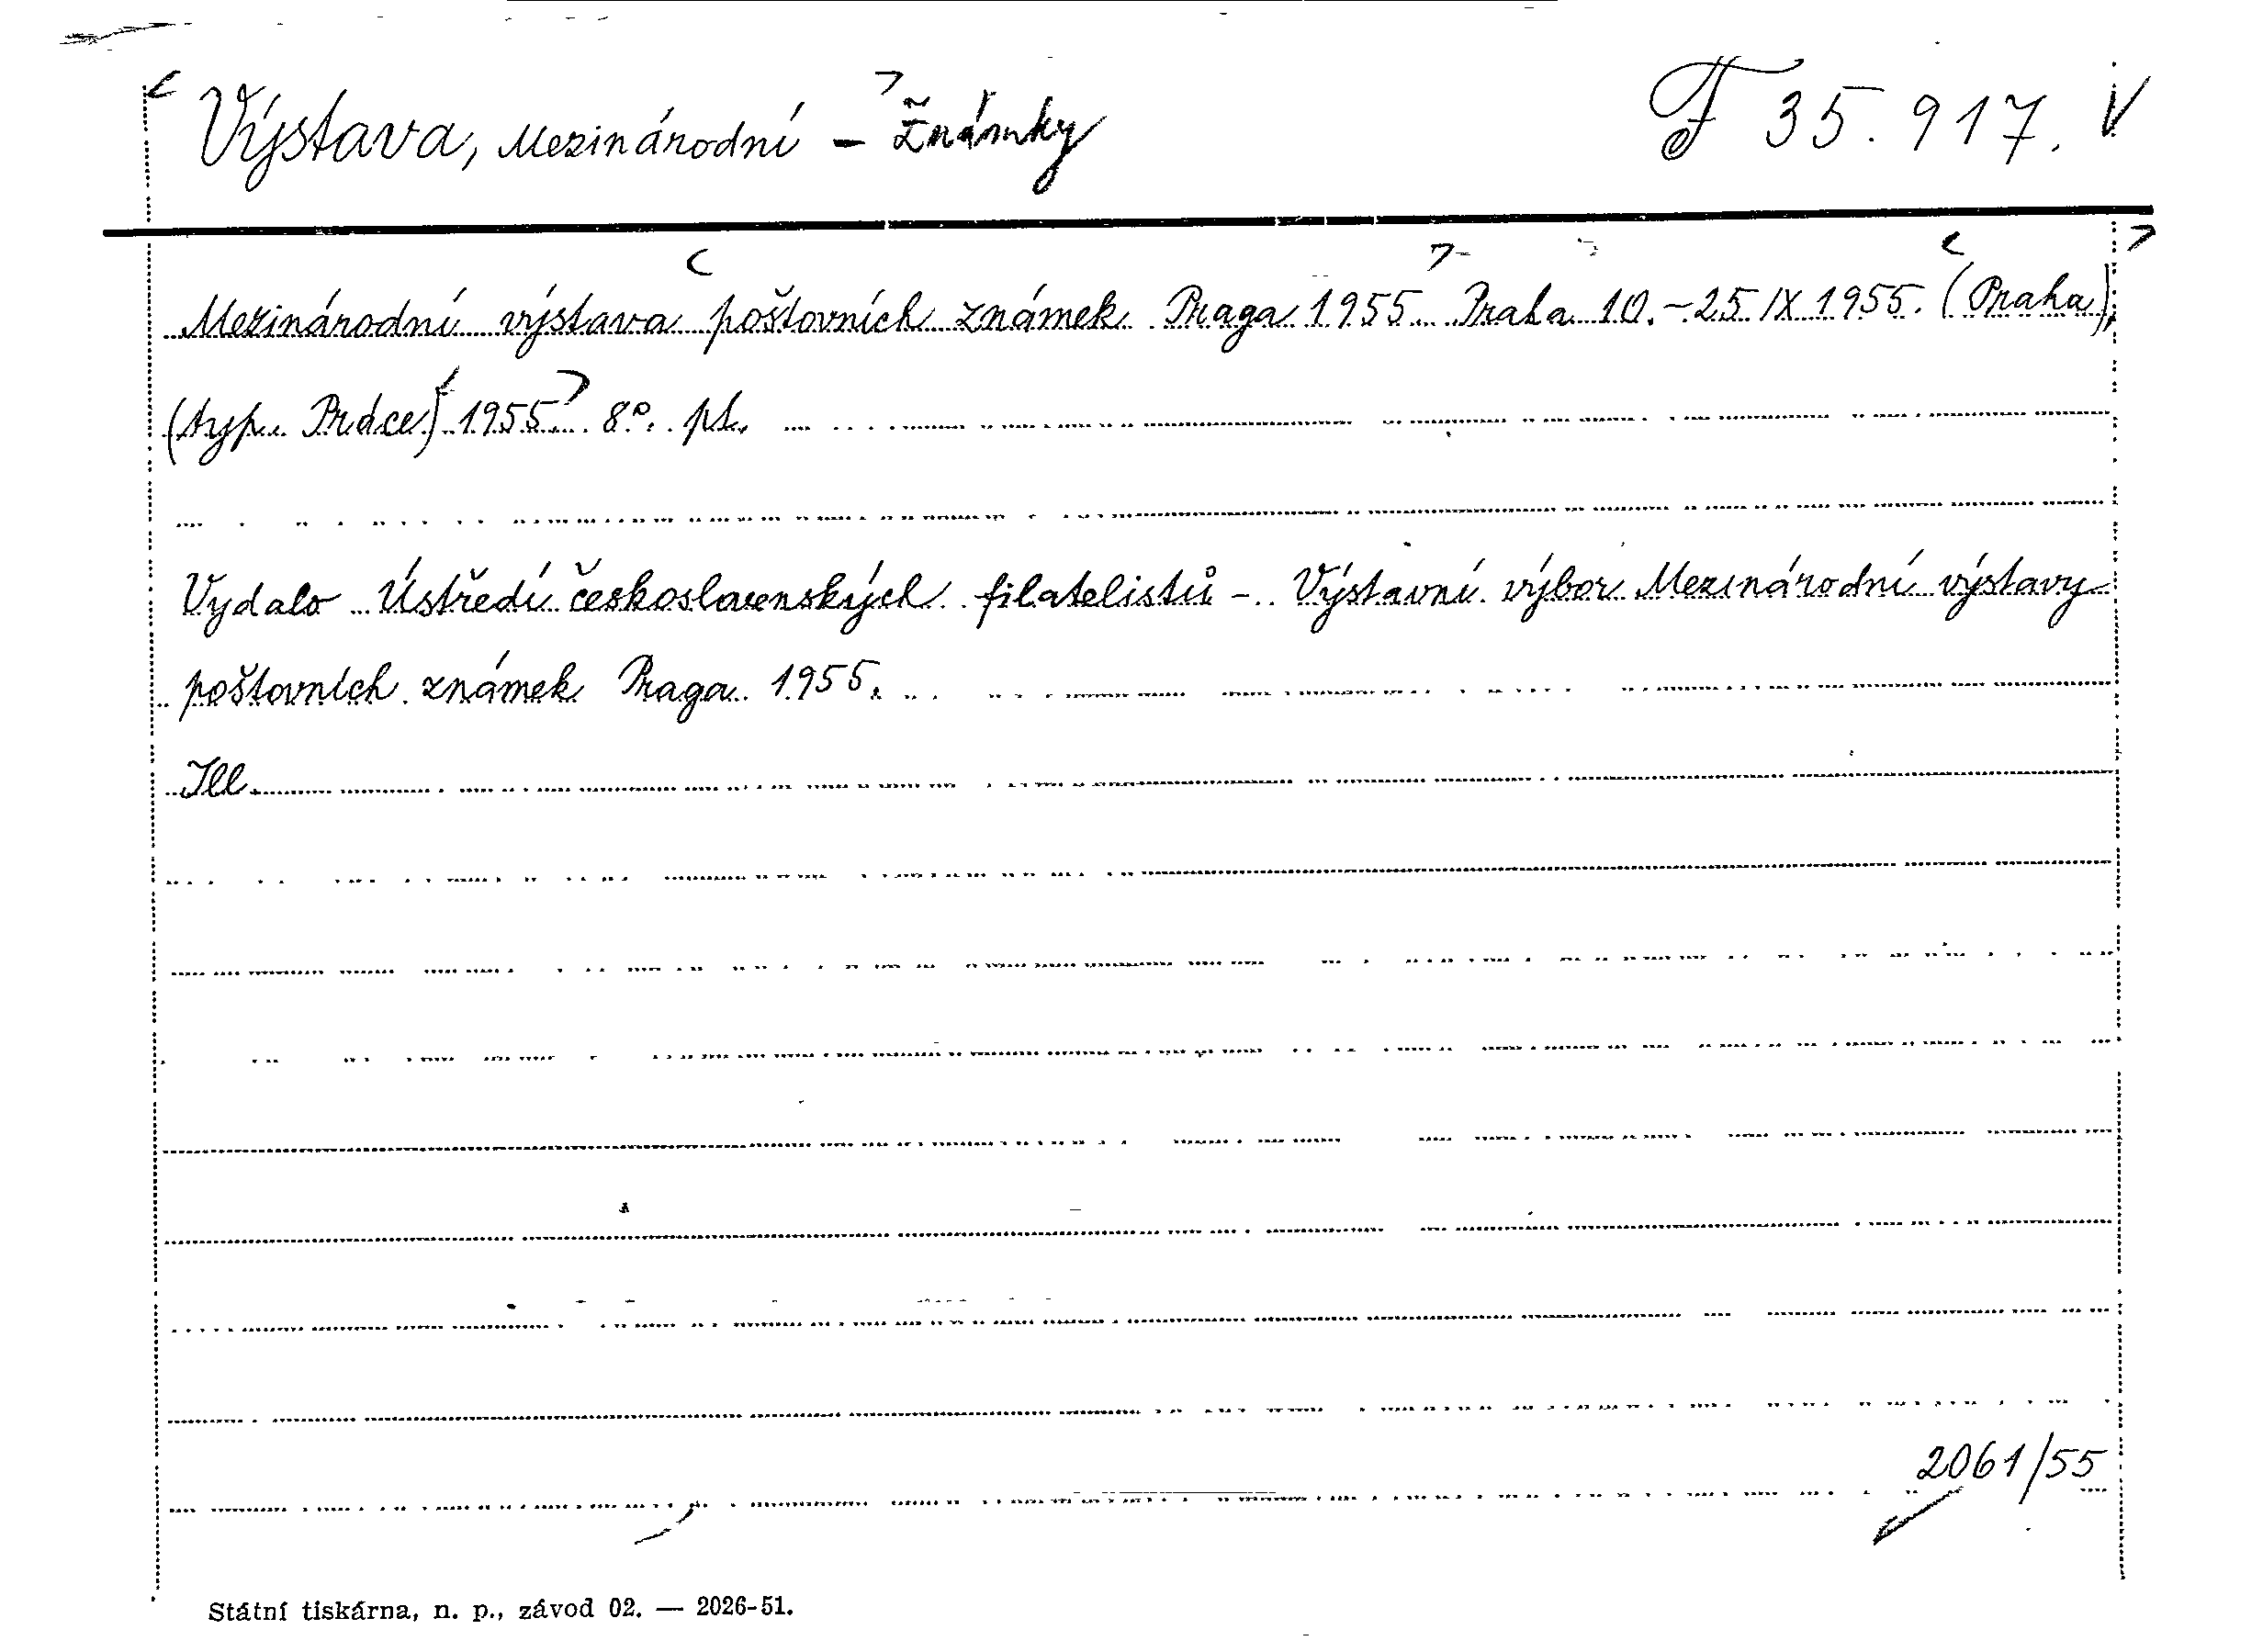 Výstava, Mezinárodní – Známky F 35.917. V
Mezinárodní výstava poštovních známek Praga 1955 Praha 10.–25 IX 1955. (Praha),
(typ. Práce) 1955. 8°. pt.
Vydalo Ústředí československých filatelistů – Výstavní výbor Mezinárodní výstavy
poštovních známek Praga 1955.
Ill.
2061/55
Státní tiskárna, n. p., závod 02. — 2026-51.